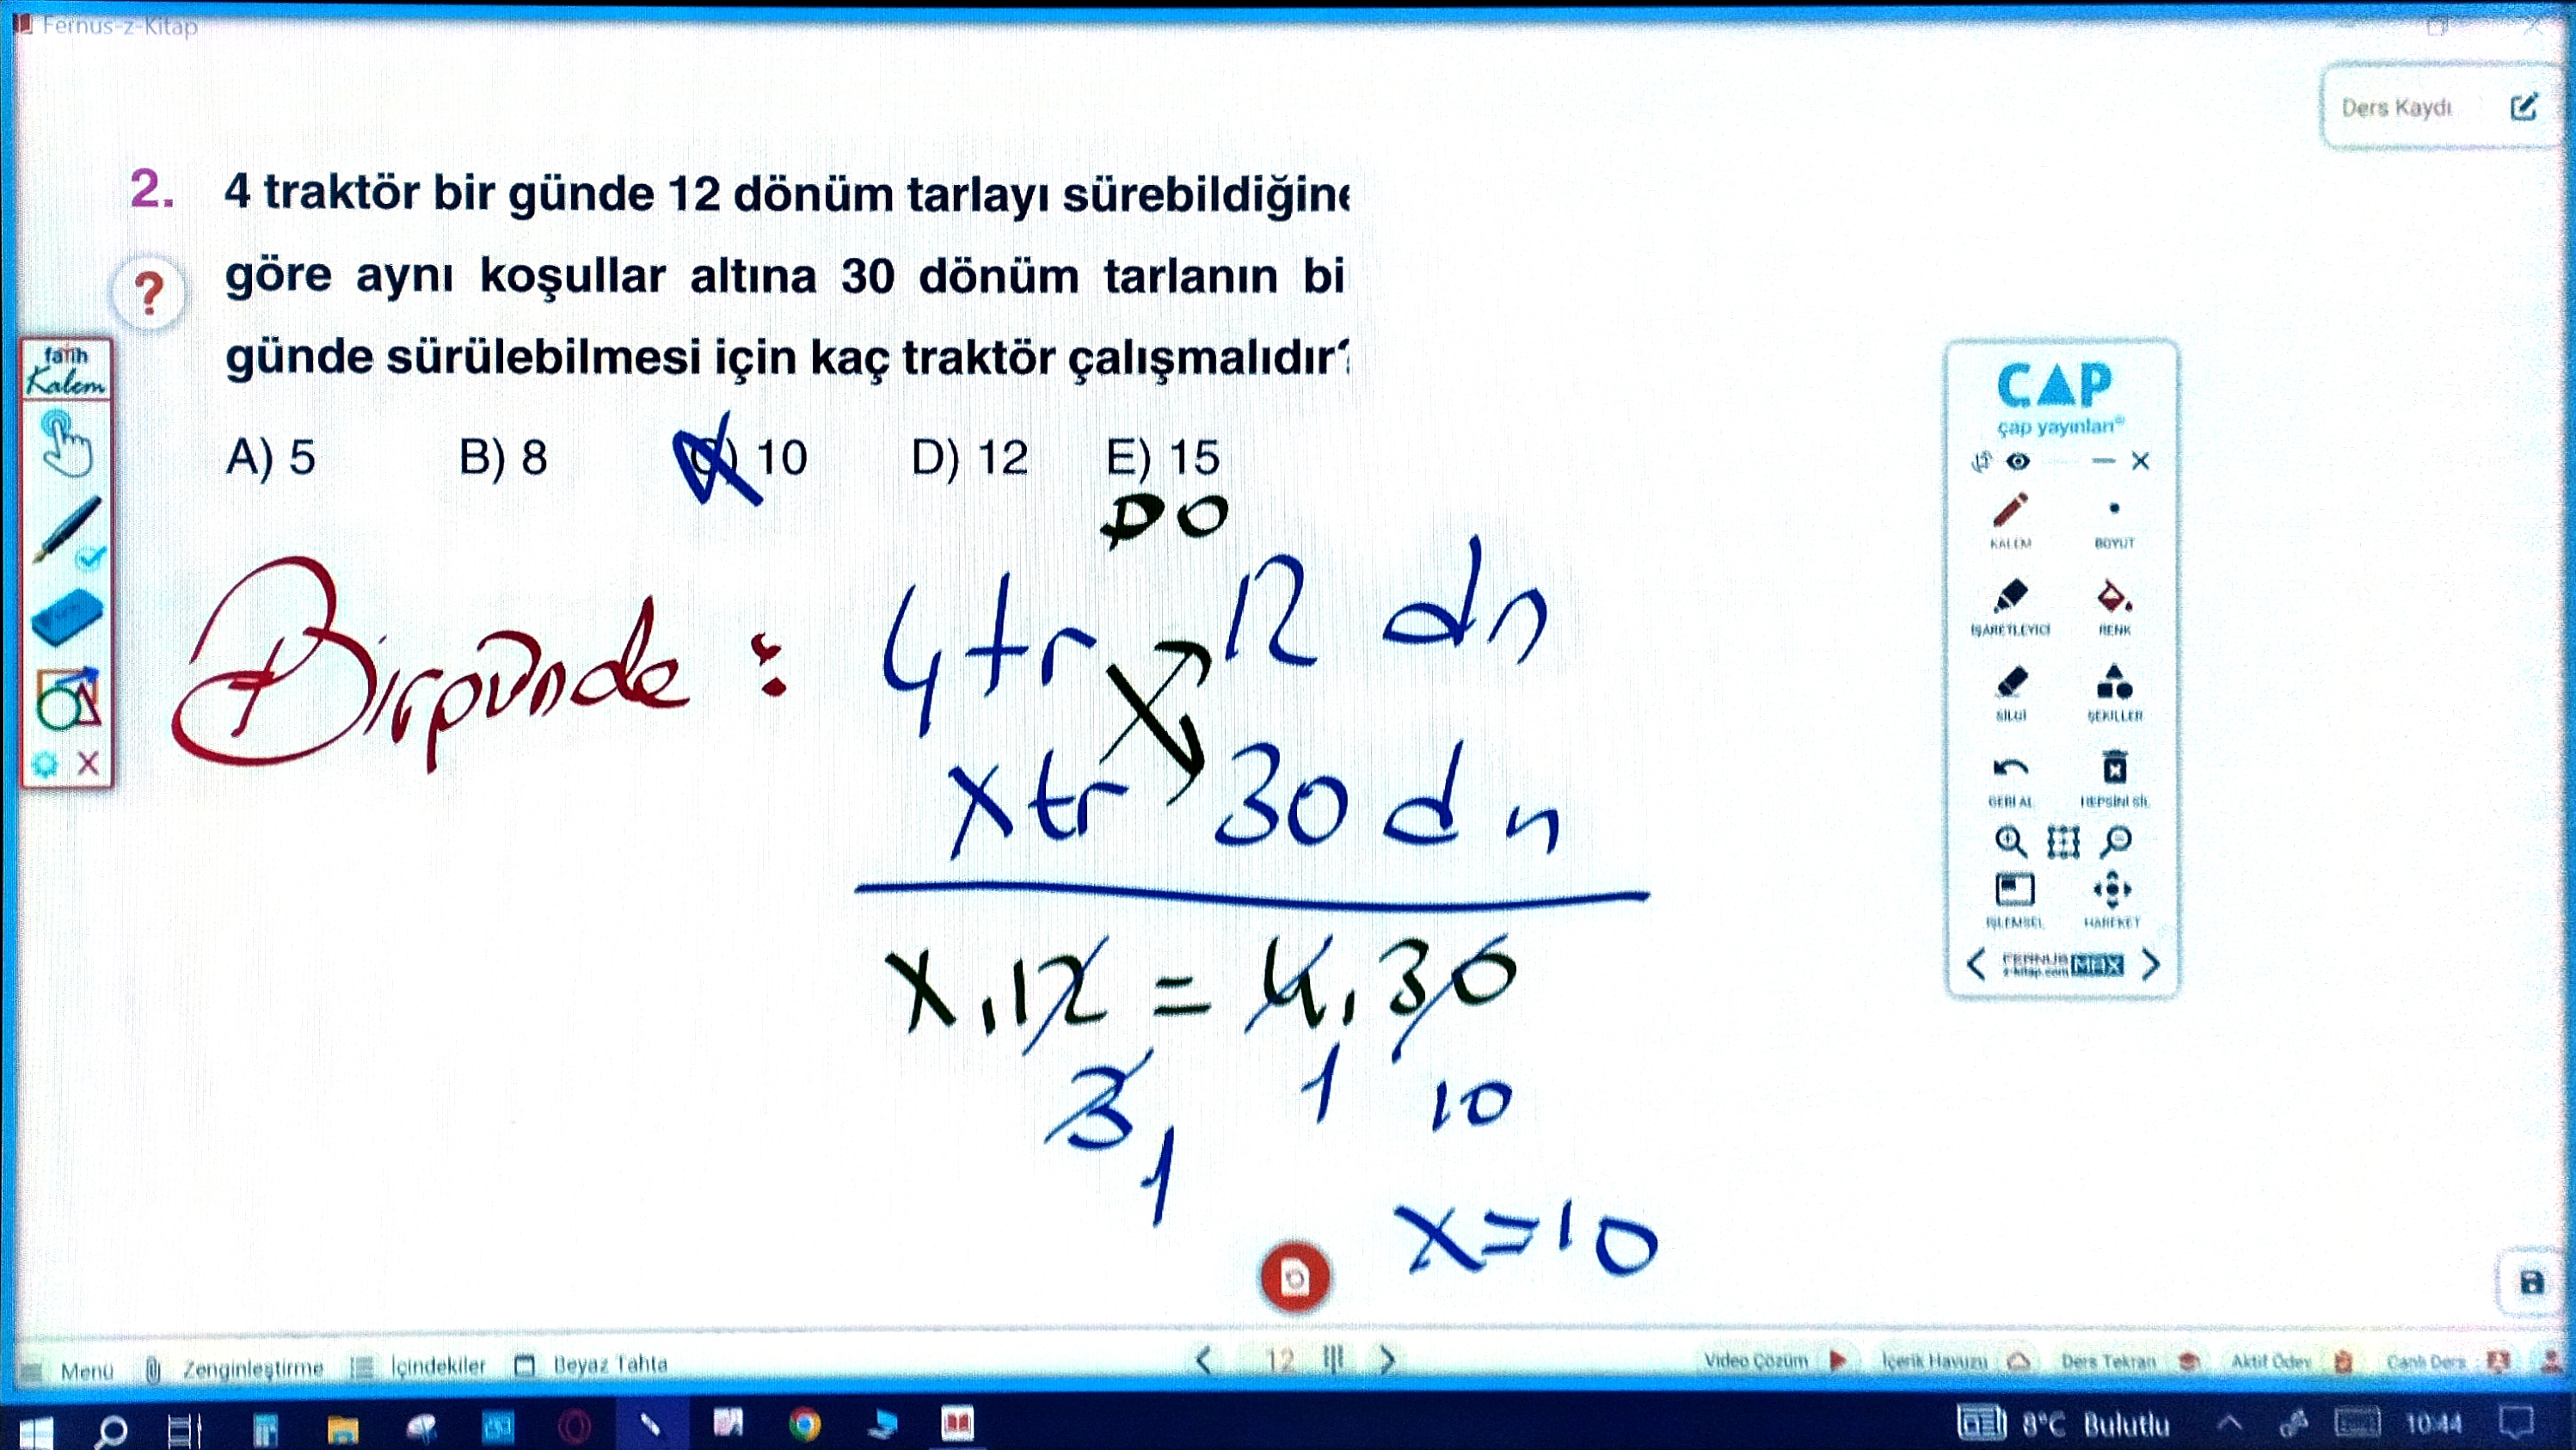 Fernus-z-Kitap
Ders Kaydı
2. 4 traktör bir günde 12 dönüm tarlayı sürebildiğine
göre aynı koşullar altına 30 dönüm tarlanın bi
günde sürülebilmesi için kaç traktör çalışmalıdır?
?
A) 5 B) 8 C) 10 D) 12 E) 15
DO
Birgünde : 4 tr 12 dn
x tr 30 dn
x.12 = 4.30
3 1 10
1
x=10
fatih
Kalem
ÇAP
çap yayınları
KALEM BOYUT
İŞARETLEYİCİ RENK
SİLGİ ŞEKİLLER
GERİ AL HEPSİNİ SİL
İŞLEMSEL HAREKET
FERNUS
z-kitap.com MAX
Menü Zenginleştirme İçindekiler Beyaz Tahta 12 Video Çözüm İçerik Havuzu Ders Tekrarı Aktif Ödev Canlı Ders
8°C Bulutlu 10:44